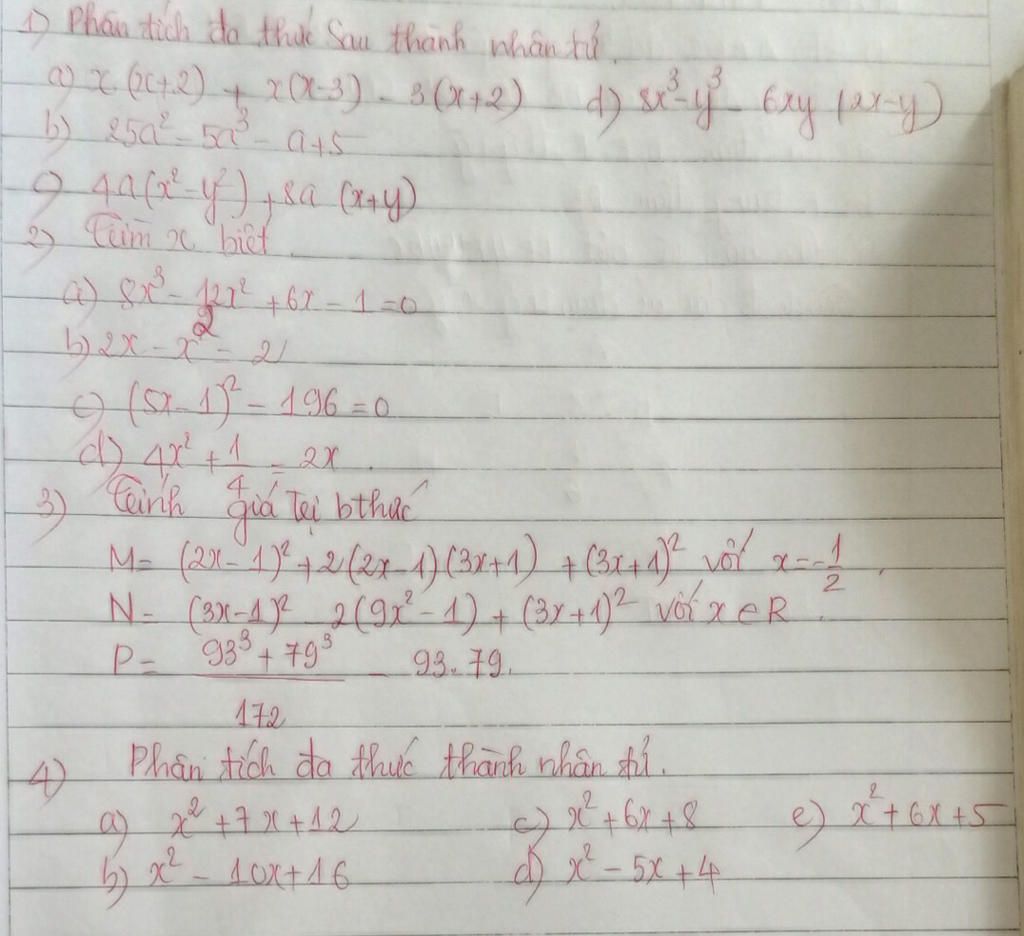 1) Phân tích đa thức sau thành nhân tử.
a) x(x+2) + x(x-3) - 3(x+2) d) 8x³-y³- 6xy (2x-y)
b) 25a² - 5a³ - a+5
c) 4a(x²-y²) + 8a (x+y)
2) Tìm x biết
a) 8x³ - 12x² + 6x - 1 = 0
b) 2x - x² = 2
c) (5x-1)² - 196 = 0
d) 4x² + 1/4 = 2x
3) Tính giá trị bthức
M= (2x-1)² + 2(2x-1)(3x+1) + (3x+1)² với x=-1/2.
N= (3x-1)² 2(9x²-1) + (3x+1)² với x∈R.
P= (93³ + 79³)/172 - 93.79.
4) Phân tích đa thức thành nhân tử.
a) x² + 7x+12 c) x² + 6x + 8 e) x² + 6x + 5
b) x² - 10x+16 d) x² - 5x + 4